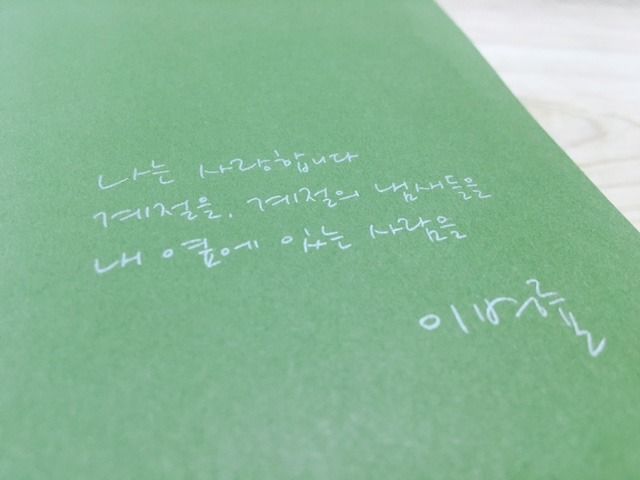 나는 사랑합니다
계절을, 계절의 냄새들을
내 옆에 있는 사람을